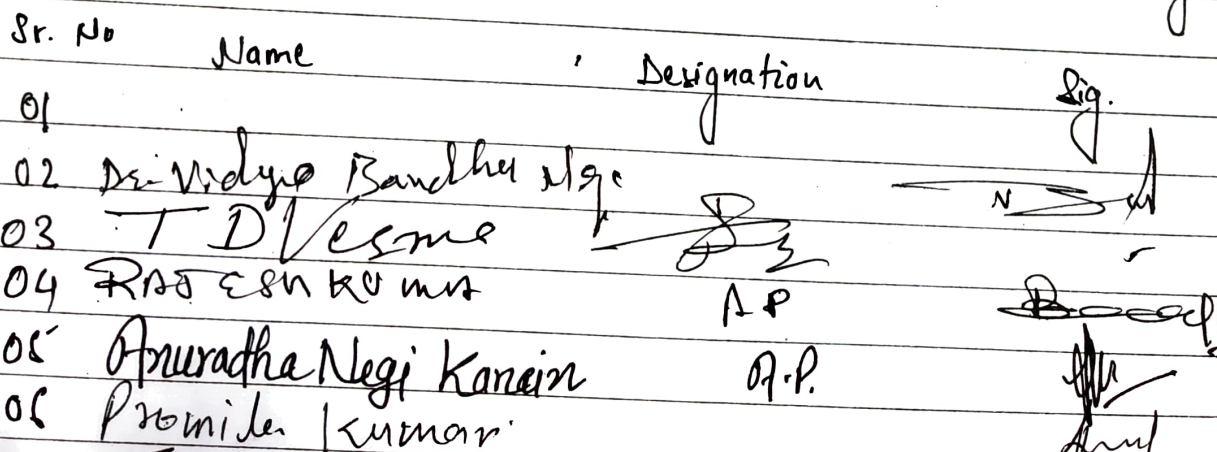 Sr. No Name Designation Sig.
01
02 Dr. Vidya Bandhu Negi
03 T D Verma
04 RAJESH KUMAR A P
05 Anuradha Negi Kanain A.P.
06 Promila Kumari